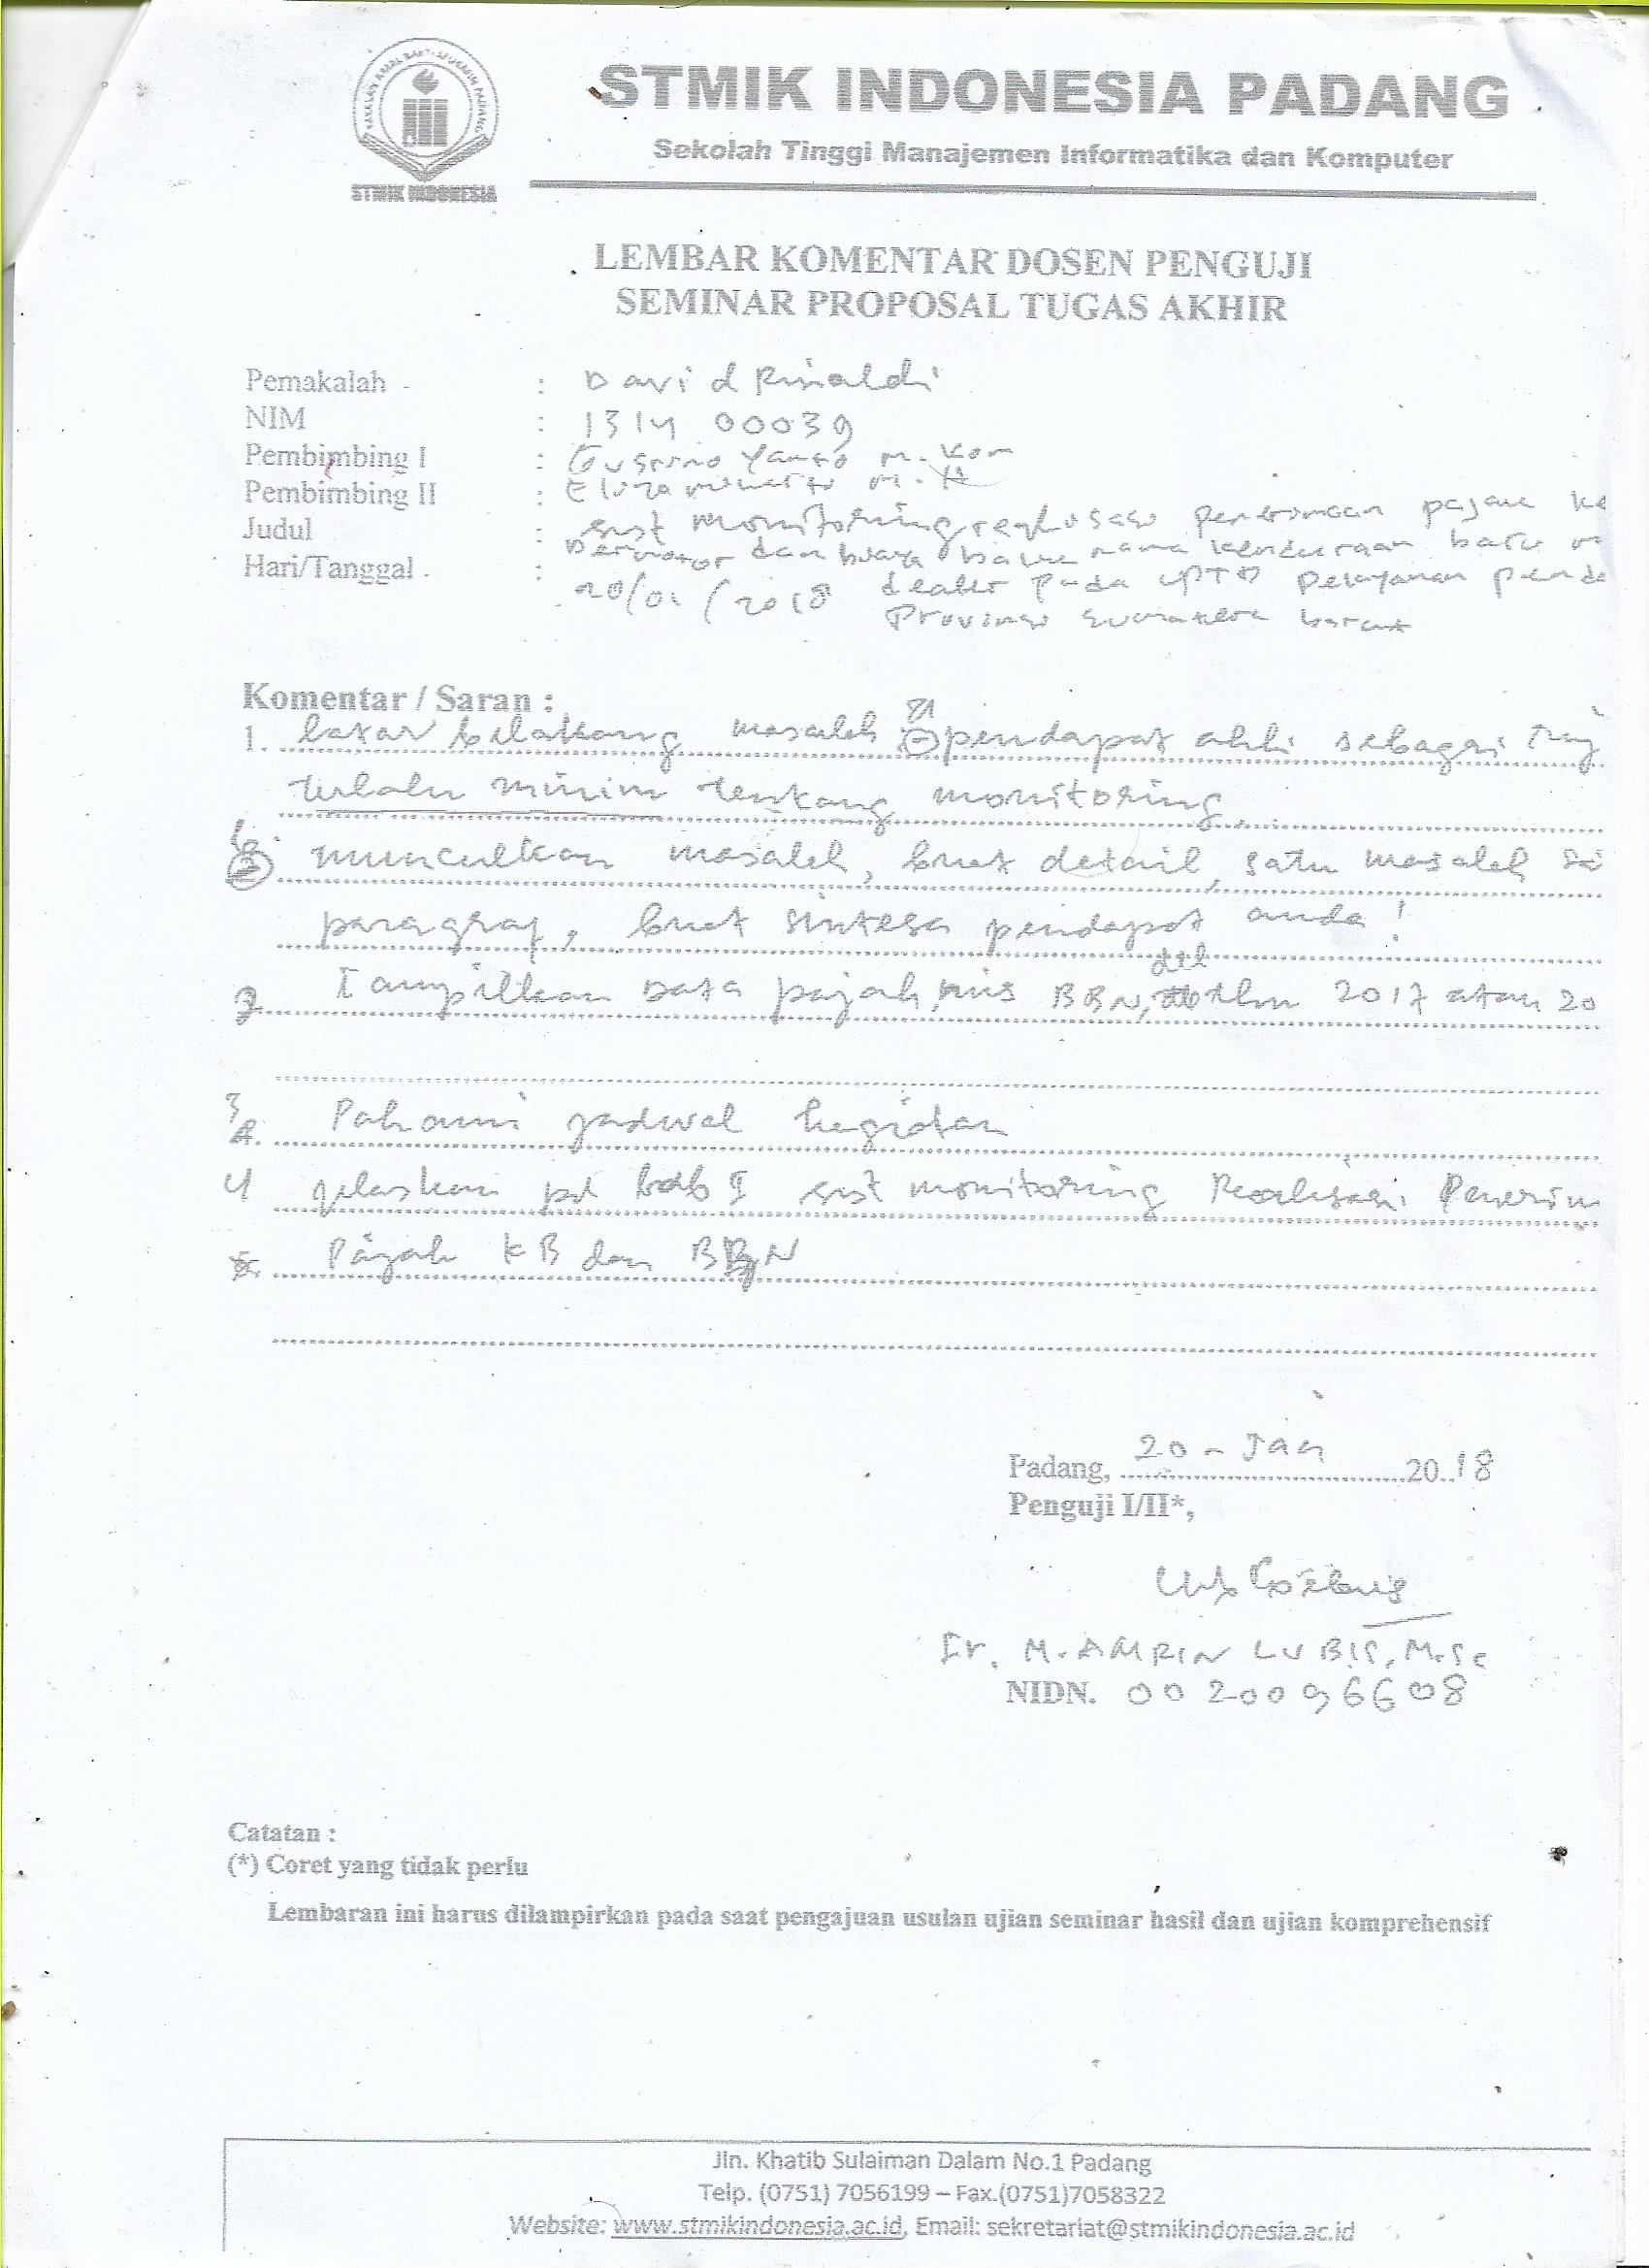 STMIK INDONESIA
STMIK INDONESIA PADANG
Sekolah Tinggi Manajemen Informatika dan Komputer
LEMBAR KOMENTAR DOSEN PENGUJI
SEMINAR PROPOSAL TUGAS AKHIR
Pemakalah : David Rinaldi
NIM : 1314 00039
Pembimbing I : Gusrino Yanto M. Kom
Pembimbing II :
Judul : sist monitoring realisasi penerimaan pajak ke
bermotor dan biaya balik nama kendaraan baru
Hari/Tanggal : 20/01/2018 dealer pada UPTD pelayanan penda
Provinsi sumatera barat
Komentar / Saran :
1. latar belakang masalah pendapat ahli sebagai
terlalu minim tentang monitoring
munculkan masalah, buat detail, satu masalah
paragraf, buat sintesa pendapat anda!
2. Tampilkan Data pajak, BBN, dll thn 2017 atau 20
3. Pahami jadwal kegiatan
4 jelaskan pd bab I sist monitoring Realisasi Penerim
Pajak KB dan BBN
Padang, 20 - Jan 20 18
Penguji I/II*,
Ir. M. AMRIN LUBIS, M.Sc
NIDN. 0020096608
Catatan :
(*) Coret yang tidak perlu
Lembaran ini harus dilampirkan pada saat pengajuan usulan ujian seminar hasil dan ujian komprehensif
Jln. Khatib Sulaiman Dalam No.1 Padang
Telp. (0751) 7056199 – Fax.(0751)7058322
Website: www.stmikindonesia.ac.id, Email: sekretariat@stmikindonesia.ac.id